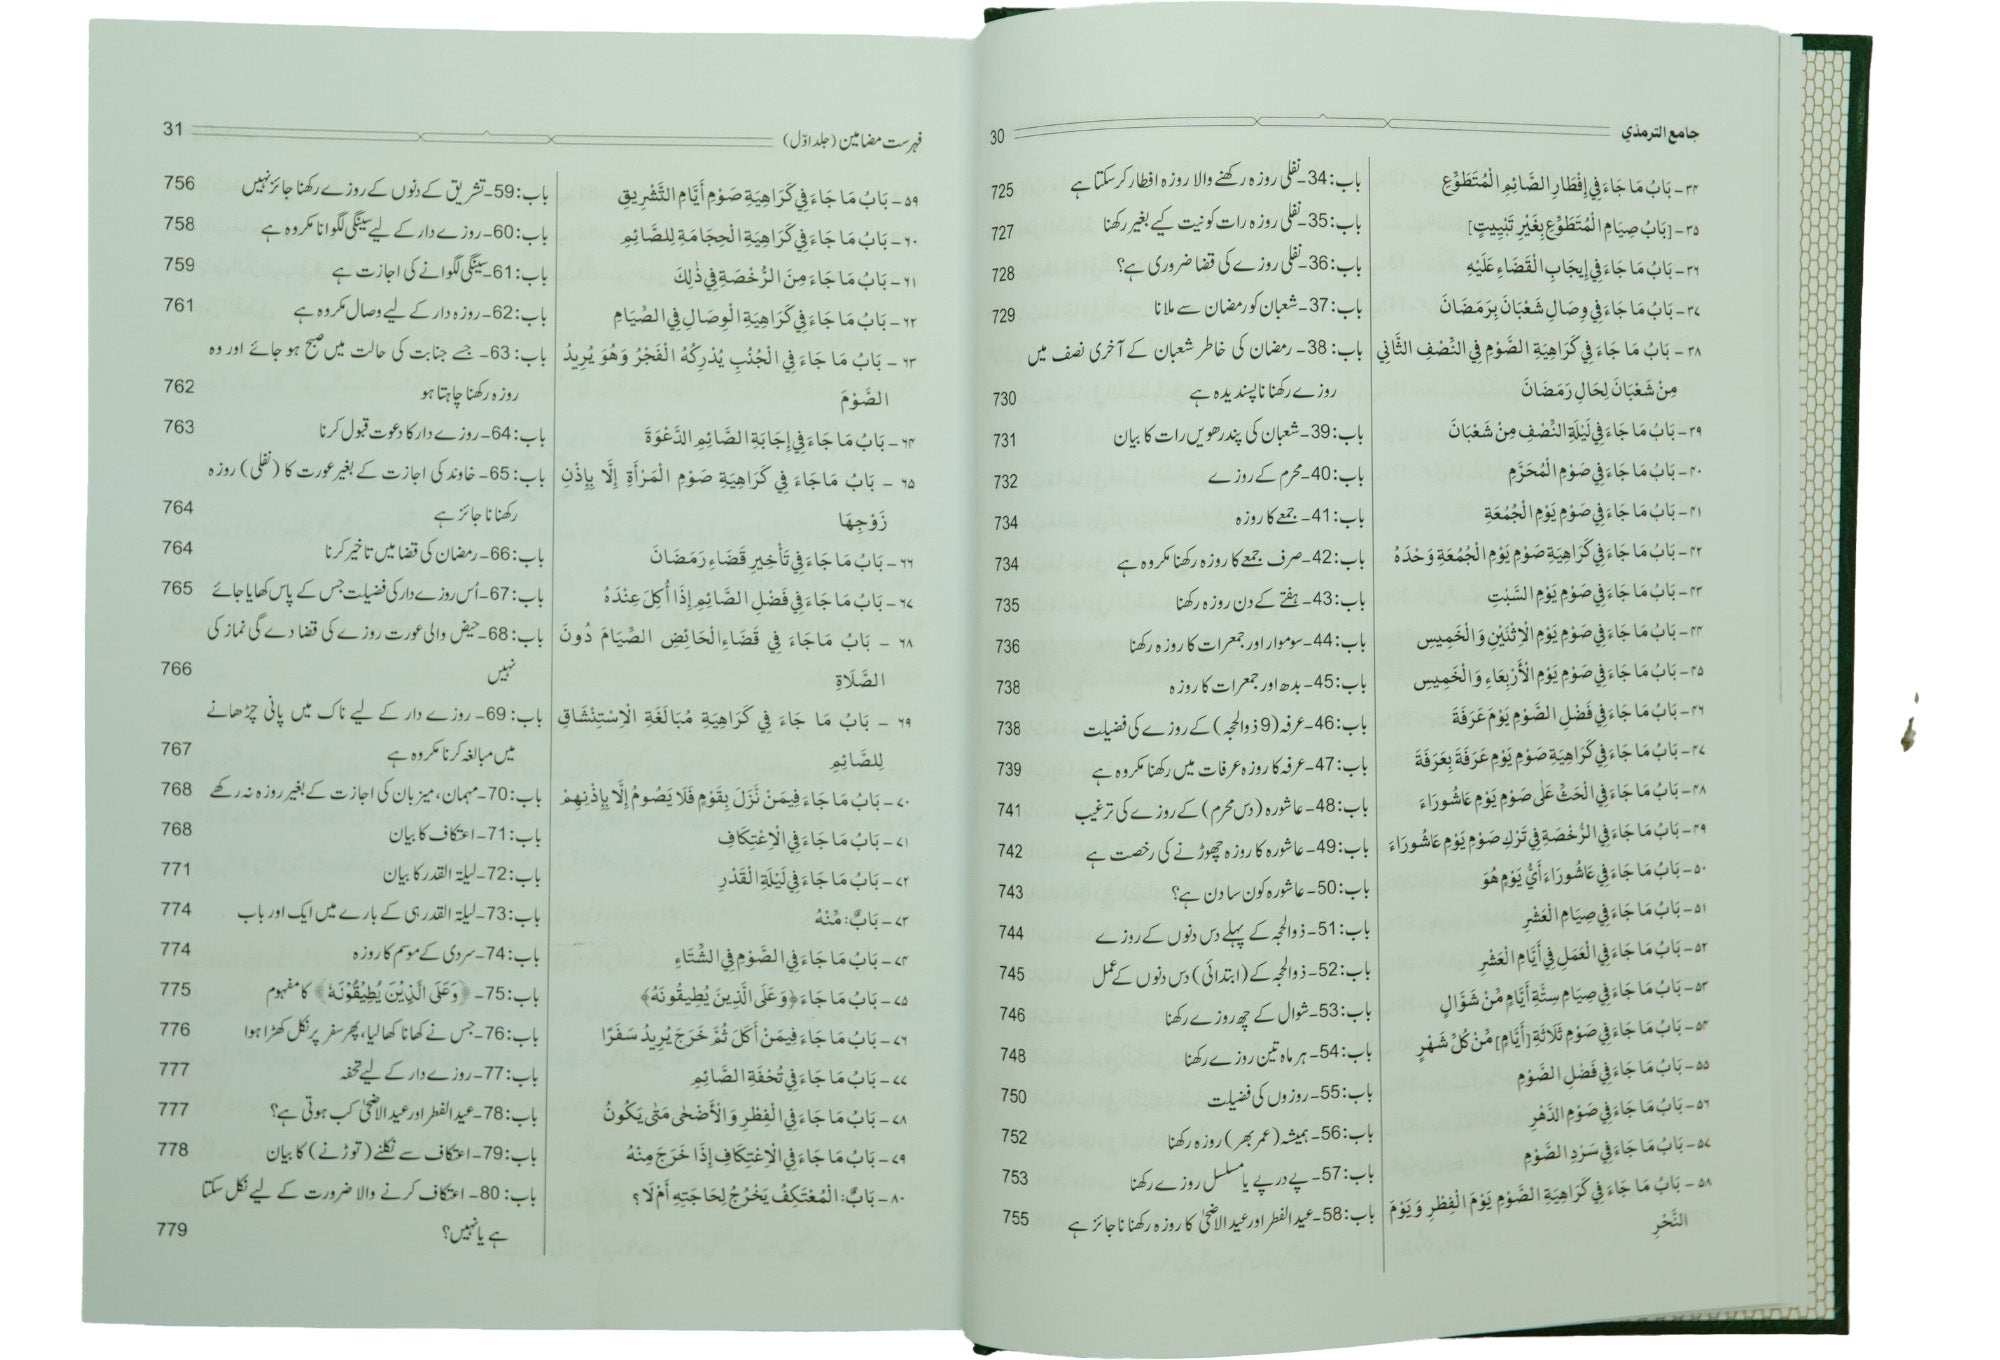 جامع الترمذي 30
٣٤ - بَابُ مَا جَاءَ فِي إِفْطَارِ الصَّائِمِ الْمُتَطَوِّعِ باب: 34- نفلی روزہ رکھنے والا روزہ افطار کر سکتا ہے 725
٣٥ - [بَابُ صِيَامِ الْمُتَطَوِّعِ بِغَيْرِ تَبْيِيتٍ] باب: 35- نفلی روزہ رات کو نیت کیے بغیر رکھنا 727
٣٦ - بَابُ مَا جَاءَ فِي إِيجَابِ الْقَضَاءِ عَلَيْهِ باب: 36- نفلی روزے کی قضا ضروری ہے؟ 728
٣٧ - بَابُ مَا جَاءَ فِي وِصَالِ شَعْبَانَ بِرَمَضَانَ باب: 37- شعبان کو رمضان سے ملانا 729
٣٨ - بَابُ مَا جَاءَ فِي كَرَاهِيَةِ الصَّوْمِ فِي النِّصْفِ الثَّانِي باب: 38- رمضان کی خاطر شعبان کے آخری نصف میں
مِنْ شَعْبَانَ لِحَالِ رَمَضَانَ روزے رکھنا ناپسندیدہ ہے 730
٣٩ - بَابُ مَا جَاءَ فِي لَيْلَةِ النِّصْفِ مِنْ شَعْبَانَ باب: 39- شعبان کی پندرھویں رات کا بیان 731
٤٠ - بَابُ مَا جَاءَ فِي صَوْمِ الْمُحَرَّمِ باب: 40- محرم کے روزے 732
٤١ - بَابُ مَا جَاءَ فِي صَوْمِ يَوْمِ الْجُمُعَةِ باب: 41- جمعے کا روزہ 734
٤٢ - بَابُ مَا جَاءَ فِي كَرَاهِيَةِ صَوْمِ يَوْمِ الْجُمُعَةِ وَحْدَهُ باب: 42- صرف جمعے کا روزہ رکھنا مکروہ ہے 734
٤٣ - بَابُ مَا جَاءَ فِي صَوْمِ يَوْمِ السَّبْتِ باب: 43- ہفتے کے دن روزہ رکھنا 735
٤٤ - بَابُ مَا جَاءَ فِي صَوْمِ يَوْمِ الْاِثْنَيْنِ وَالْخَمِيسِ باب: 44- سوموار اور جمعرات کا روزہ رکھنا 736
٤٥ - بَابُ مَا جَاءَ فِي صَوْمِ يَوْمِ الْأَرْبَعَاءِ وَالْخَمِيسِ باب: 45- بدھ اور جمعرات کا روزہ 738
٤٦ - بَابُ مَا جَاءَ فِي فَضْلِ الصَّوْمِ يَوْمَ عَرَفَةَ باب: 46- عرفہ (9 ذوالحجہ) کے روزے کی فضیلت 738
٤٧ - بَابُ مَا جَاءَ فِي كَرَاهِيَةِ صَوْمِ يَوْمِ عَرَفَةَ بِعَرَفَةَ باب: 47- عرفہ کا روزہ عرفات میں رکھنا مکروہ ہے 739
٤٨ - بَابُ مَا جَاءَ فِي الْحَثِّ عَلَى صَوْمِ يَوْمِ عَاشُورَاءَ باب: 48- عاشورہ (دس محرم) کے روزے کی ترغیب 741
٤٩ - بَابُ مَا جَاءَ فِي الرُّخْصَةِ فِي تَرْكِ صَوْمِ يَوْمِ عَاشُورَاءَ باب: 49- عاشورہ کا روزہ چھوڑنے کی رخصت ہے 742
٥٠ - بَابُ مَا جَاءَ فِي عَاشُورَاءَ أَيُّ يَوْمٍ هُوَ باب: 50- عاشورہ کون سا دن ہے؟ 743
٥١ - بَابُ مَا جَاءَ فِي صِيَامِ الْعَشْرِ باب: 51- ذوالحجہ کے پہلے دس دنوں کے روزے 744
٥٢ - بَابُ مَا جَاءَ فِي الْعَمَلِ فِي أَيَّامِ الْعَشْرِ باب: 52- ذوالحجہ کے (ابتدائی) دس دنوں کے عمل 745
٥٣ - بَابُ مَا جَاءَ فِي صِيَامِ سِتَّةِ أَيَّامٍ مِّنْ شَوَّالٍ باب: 53- شوال کے چھ روزے رکھنا 746
٥٤ - بَابُ مَا جَاءَ فِي صَوْمِ ثَلَاثَةِ [أَيَّامٍ] مِّنْ كُلِّ شَهْرٍ باب: 54- ہر ماہ تین روزے رکھنا 748
٥٥ - بَابُ مَا جَاءَ فِي فَضْلِ الصَّوْمِ باب: 55- روزوں کی فضیلت 750
٥٦ - بَابُ مَا جَاءَ فِي صَوْمِ الدَّهْرِ باب: 56- ہمیشہ (عمر بھر) روزہ رکھنا 752
٥٧ - بَابُ مَا جَاءَ فِي سَرْدِ الصَّوْمِ باب: 57- پے در پے یا مسلسل روزے رکھنا 753
٥٨ - بَابُ مَا جَاءَ فِي كَرَاهِيَةِ الصَّوْمِ يَوْمَ الْفِطْرِ وَيَوْمَ النَّحْرِ باب: 58- عیدالفطر اور عیدالاضحیٰ کا روزہ رکھنا ناجائز ہے 755
فہرست مضامین (جلد اوّل) 31
٥٩ - بَابُ مَا جَاءَ فِي كَرَاهِيَةِ صَوْمِ أَيَّامِ التَّشْرِيقِ باب: 59- تشریق کے دنوں کے روزے رکھنا جائز نہیں 756
٦٠ - بَابُ مَا جَاءَ فِي كَرَاهِيَةِ الْحِجَامَةِ لِلصَّائِمِ باب: 60- روزے دار کے لیے سینگی لگوانا مکروہ ہے 758
٦١ - بَابُ مَا جَاءَ مِنَ الرُّخْصَةِ فِي ذٰلِكَ باب: 61- سینگی لگوانے کی اجازت ہے 759
٦٢ - بَابُ مَا جَاءَ فِي كَرَاهِيَةِ الْوِصَالِ فِي الصِّيَامِ باب: 62- روزہ دار کے لیے وصال مکروہ ہے 761
٦٣ - بَابُ مَا جَاءَ فِي الْجُنُبِ يُدْرِكُهُ الْفَجْرُ وَهُوَ يُرِيدُ باب: 63- جسے جنابت کی حالت میں صبح ہو جائے اور وہ
الصَّوْمَ روزہ رکھنا چاہتا ہو 762
٦٤ - بَابُ مَا جَاءَ فِي إِجَابَةِ الصَّائِمِ الدَّعْوَةَ باب: 64- روزے دار کا دعوت قبول کرنا 763
٦٥ - بَابُ مَا جَاءَ فِي كَرَاهِيَةِ صَوْمِ الْمَرْأَةِ إِلَّا بِإِذْنِ باب: 65- خاوند کی اجازت کے بغیر عورت کا (نفلی) روزہ
زَوْجِهَا رکھنا ناجائز ہے 764
٦٦ - بَابُ مَا جَاءَ فِي تَأْخِيرِ قَضَاءِ رَمَضَانَ باب: 66- رمضان کی قضا میں تاخیر کرنا 764
٦٧ - بَابُ مَا جَاءَ فِي فَضْلِ الصَّائِمِ إِذَا أُكِلَ عِنْدَهُ باب: 67- اُس روزے دار کی فضیلت جس کے پاس کھایا جائے 765
٦٨ - بَابُ مَا جَاءَ فِي قَضَاءِ الْحَائِضِ الصِّيَامَ دُونَ باب: 68- حیض والی عورت روزے کی قضا دے گی نماز کی
الصَّلَاةِ نہیں 766
٦٩ - بَابُ مَا جَاءَ فِي كَرَاهِيَةِ مُبَالَغَةِ الْاِسْتِنْشَاقِ باب: 69- روزے دار کے لیے ناک میں پانی چڑھانے
لِلصَّائِمِ میں مبالغہ کرنا مکروہ ہے 767
٧٠ - بَابُ مَا جَاءَ فِيمَنْ نَّزَلَ بِقَوْمٍ فَلَا يَصُومُ إِلَّا بِإِذْنِهِمْ باب: 70- مہمان، میزبان کی اجازت کے بغیر روزہ نہ رکھے 768
٧١ - بَابُ مَا جَاءَ فِي الْاِعْتِكَافِ باب: 71- اعتکاف کا بیان 768
٧٢ - بَابُ مَا جَاءَ فِي لَيْلَةِ الْقَدْرِ باب: 72- لیلۃ القدر کا بیان 771
٧٣ - بَابٌ: مِّنْهُ باب: 73- لیلۃ القدر ہی کے بارے میں ایک اور باب 774
٧٤ - بَابُ مَا جَاءَ فِي الصَّوْمِ فِي الشِّتَاءِ باب: 74- سردی کے موسم کا روزہ 774
٧٥ - بَابُ مَا جَاءَ ﴿وَعَلَى الَّذِينَ يُطِيقُونَهُ﴾ باب: 75- ﴿وَعَلَى الَّذِيْنَ يُطِيْقُوْنَهٗ﴾ کا مفہوم 775
٧٦ - بَابُ مَا جَاءَ فِيمَنْ أَكَلَ ثُمَّ خَرَجَ يُرِيدُ سَفَرًا باب: 76- جس نے کھانا کھا لیا، پھر سفر پر نکل کھڑا ہوا 776
٧٧ - بَابُ مَا جَاءَ فِي تُحْفَةِ الصَّائِمِ باب: 77- روزے دار کے لیے تحفہ 777
٧٨ - بَابُ مَا جَاءَ فِي الْفِطْرِ وَالْأَضْحٰى مَتٰى يَكُونُ باب: 78- عیدالفطر اور عیدالاضحیٰ کب ہوتی ہے؟ 777
٧٩ - بَابُ مَا جَاءَ فِي الْاِعْتِكَافِ إِذَا خَرَجَ مِنْهُ باب: 79- اعتکاف سے نکلنے (توڑنے) کا بیان 778
٨٠ - بَابٌ: الْمُعْتَكِفُ يَخْرُجُ لِحَاجَتِهِ أَمْ لَا؟ باب: 80- اعتکاف کرنے والا ضرورت کے لیے نکل سکتا
ہے یا نہیں؟ 779